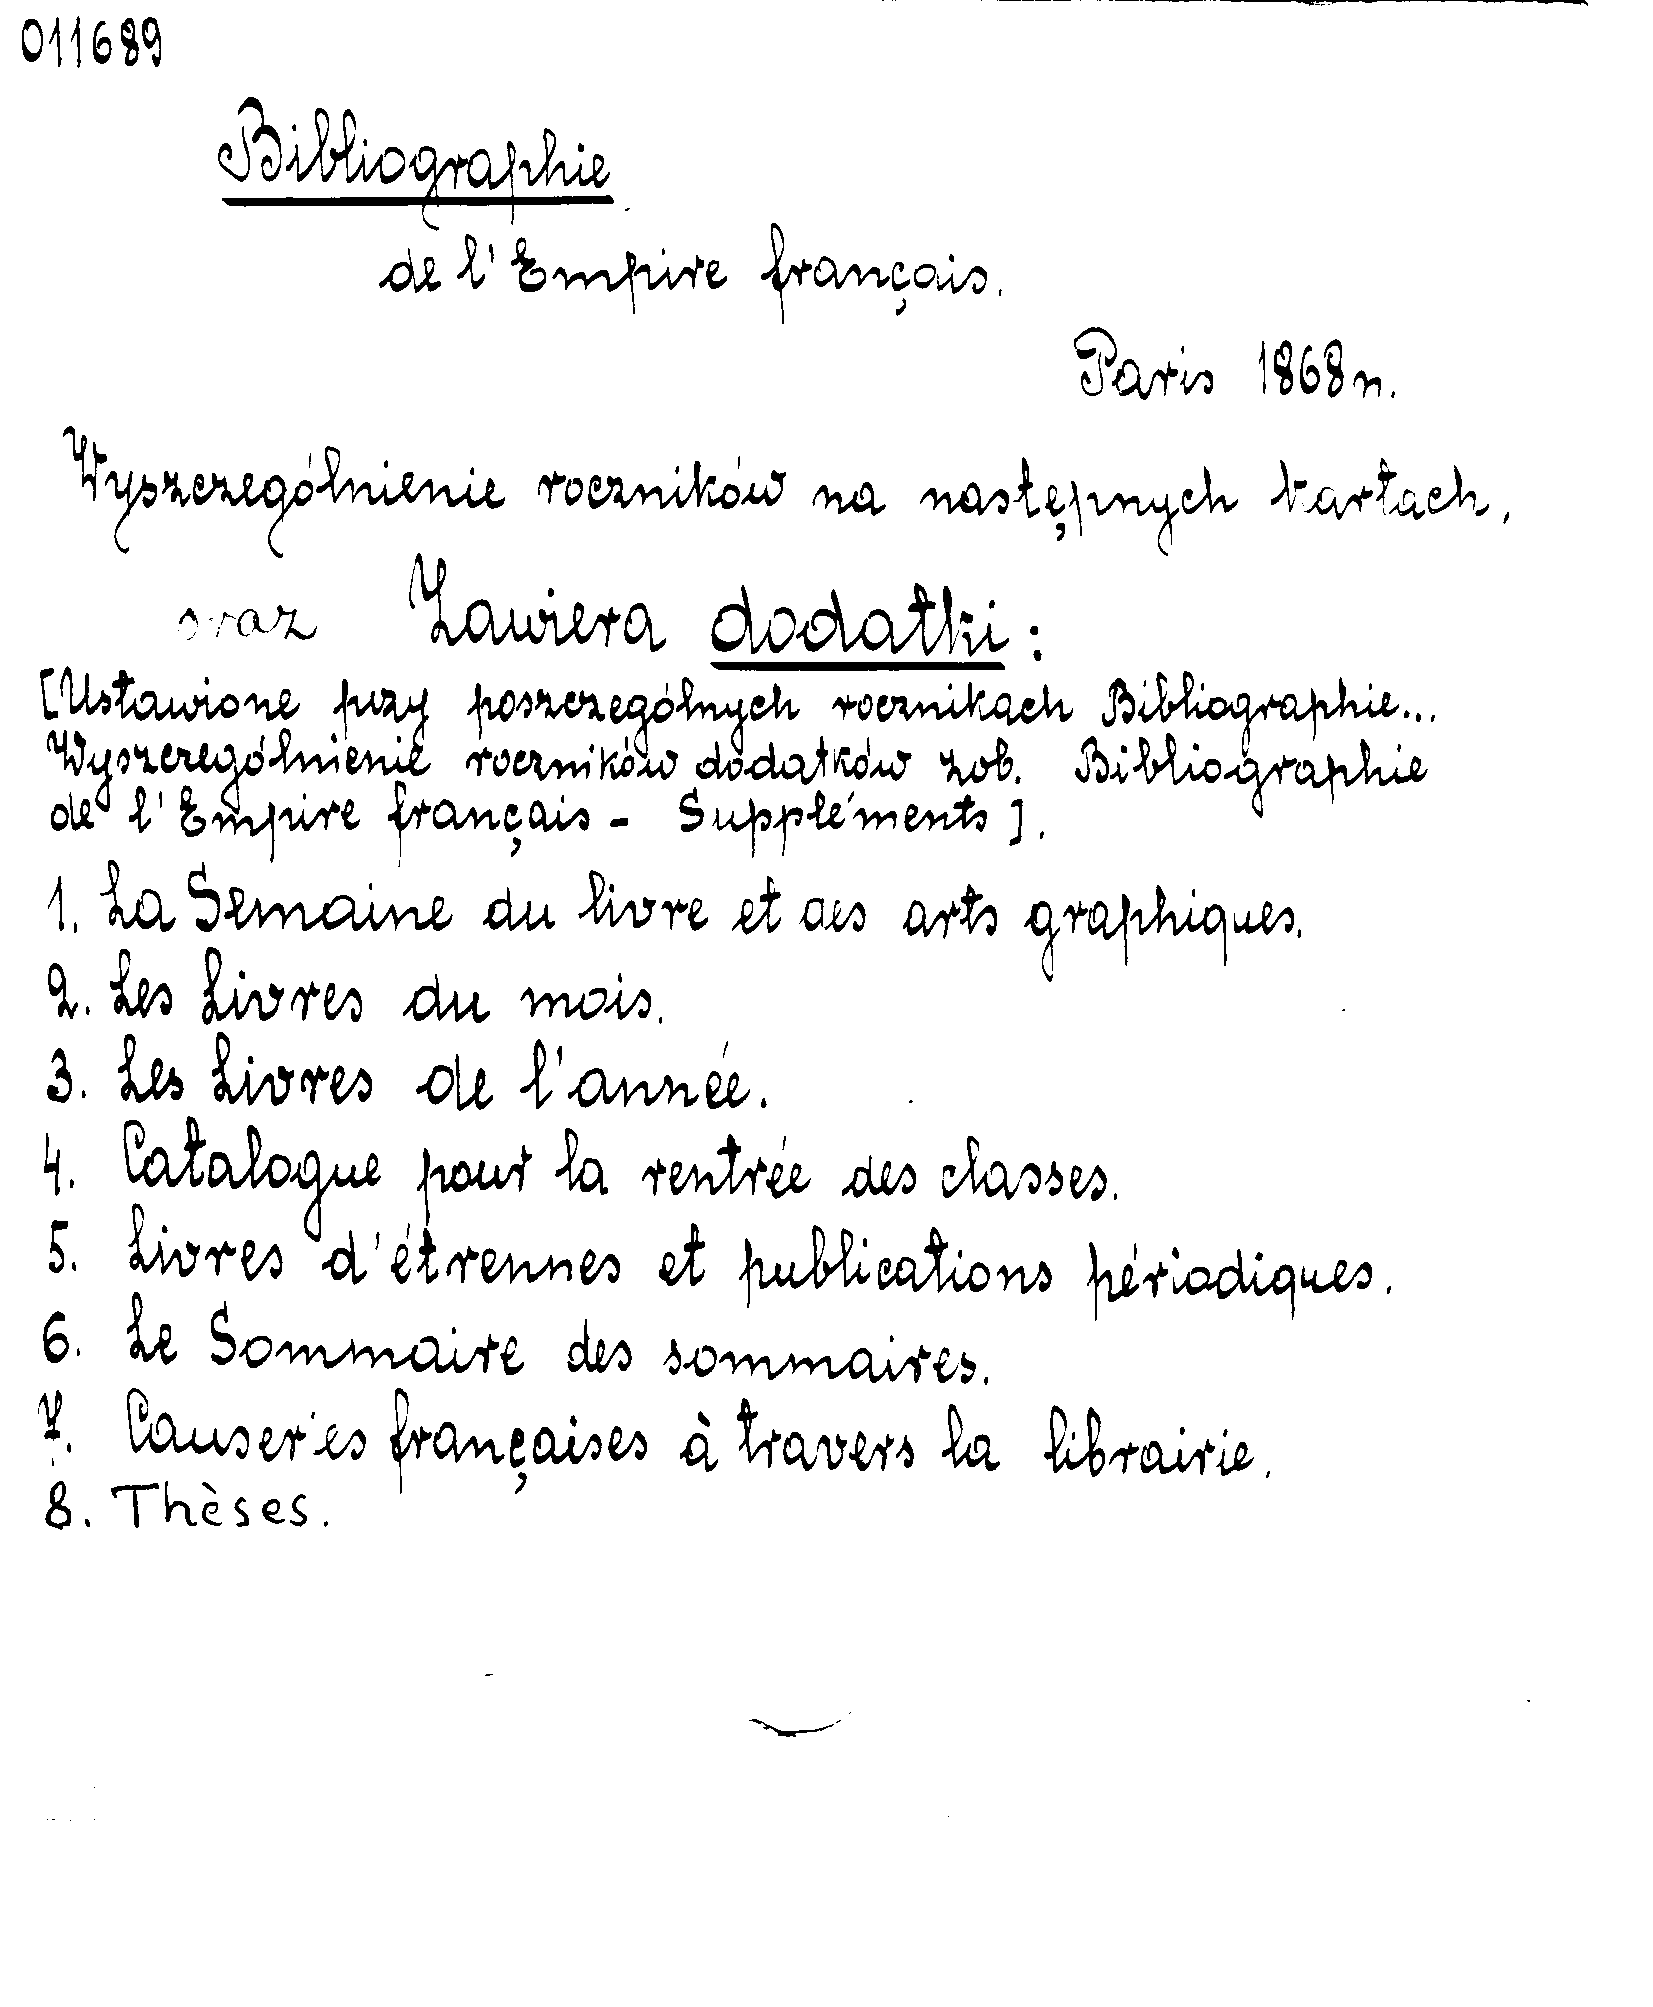 011689
Bibliographie
de l'Empire français.
Paris 1868n.
Wyszczególnienie roczników na następnych kartach,
oraz Zawiera dodatki:
[Ustawione przy poszczególnych rocznikach Bibliographie...
Wyszczególnienie roczników dodatków zob. Bibliographie
de l'Empire français - Suppléments].
1. La Semaine du livre et des arts graphiques.
2. Les Livres du mois.
3. Les Livres de l'année.
4. Catalogue pour la rentrée des classes.
5. Livres d'étrennes et publications périodiques.
6. Le Sommaire des sommaires.
7. Causeries françaises à travers la librairie.
8. Thèses.